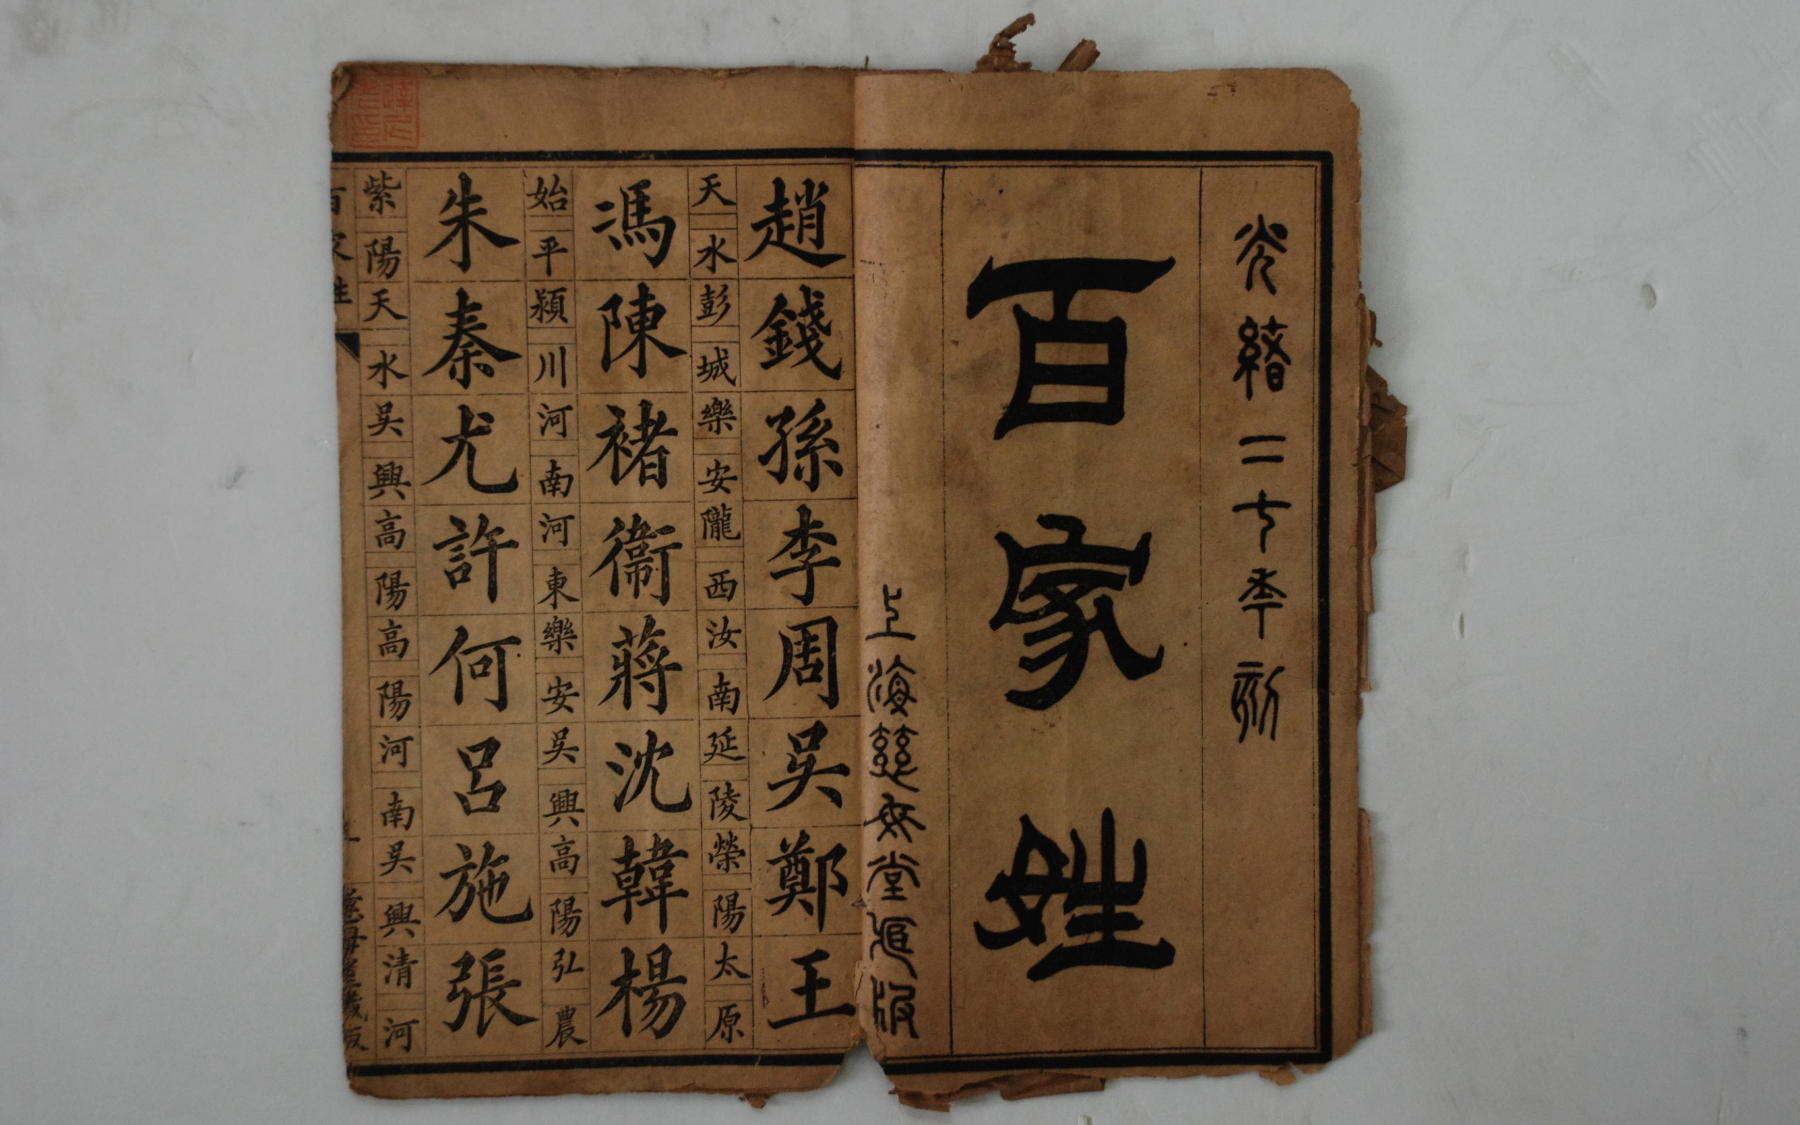 光緒二七年刻
百家姓
上海慈母堂版
趙錢孫李周吳鄭王
天水彭城樂安隴西汝南延陵榮陽太原
馮陳褚衞蔣沈韓楊
始平潁川河南河東樂安吳興高陽弘農
朱秦尤許何呂施張
紫陽天水吳興高陽高陽河南吳興清河
百家姓